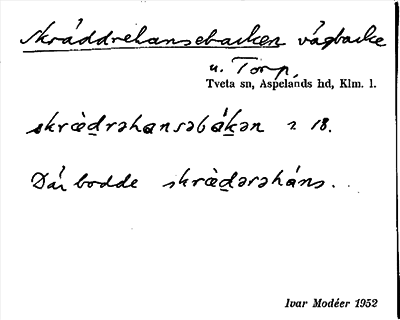 Skräddrehansebacken vägbacke
u. Torp,
Tveta sn, Aspelands hd, Klm. l.
skræ̀d̲rəhansəbák̲ən 2 18.
Där bodde skræ̀d̲ərəháns.
Ivar Modéer 1952